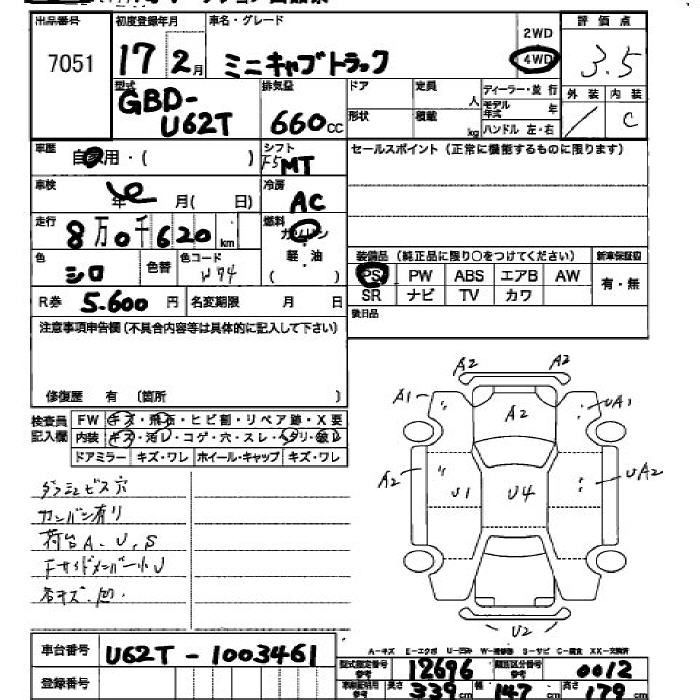 出品番号 初度登録年月 車名・グレード 2WD 評価点
7051 17 2月 ミニキャブトラック 4WD 3.5
型式 排気量 ドア 定員 人 ディーラー・並行 外装 内装
GBD-U62T 660cc 形状 積載 kg モデル年式 年 C
ハンドル 左・右
車歴 シフト セールスポイント（正常に機能するものに限ります）
自家用・( ) F5MT
車検 年 月( 日) 冷房 AC
走行 8万0千620km 燃料 ガソリン
軽・油
( )
色 シロ 色替 色コード W74
装備品（純正品に限り○をつけてください） 新車保証書
PS PW ABS エアB AW 有・無
SR ナビ TV カワ
R券 5.600円 名変期限 月 日
後日品
注意事項申告欄（不具合内容等は具体的に記入して下さい）
修復歴 有（箇所 ）
検査員記入欄 FW キズ・飛石・ヒビ割・リペア跡・X要
内装 キズ・汚レ・コゲ・穴・スレ・
ドアミラー キズ・ワレ ホイール・キャップ キズ・ワレ
A2 A2
A1 A2 UA1
A2 U1 U4 UA2
U2
ダッシュビス穴
カンバン有り
荷台A、U、S
Fサイドメンバー小U
各キズ.凹
A-キズ E-エクボ U-凹み W-補修跡 S-サビ C-腐食 XX-交換済
車台番号 U62T-1003461
登録番号
型式指定番号参考 12696 類別区分番号参考 0012
長さ 339cm 幅 147cm 高さ 179cm